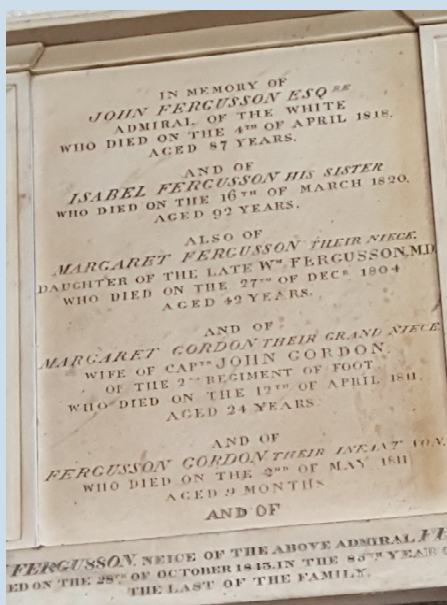 IN MEMORY OF
JOHN FERGUSSON ESQRE
ADMIRAL OF THE WHITE
WHO DIED ON THE 4TH OF APRIL 1818.
AGED 87 YEARS.
AND OF
ISABEL FERGUSSON HIS SISTER
WHO DIED ON THE 16TH OF MARCH 1820,
AGED 92 YEARS.
ALSO OF
MARGARET FERGUSSON THEIR NIECE.
DAUGHTER OF THE LATE WM FERGUSSON, M.D.
WHO DIED ON THE 27TH OF DECR 1804
AGED 42 YEARS.
AND OF
MARGARET GORDON THEIR GRAND NIECE
WIFE OF CAPTN JOHN GORDON.
OF THE 2ND REGIMENT OF FOOT
WHO DIED ON THE 12TH OF APRIL 1811.
AGED 24 YEARS.
AND OF
FERGUSSON GORDON THEIR INFANT SON.
WHO DIED ON THE 2ND OF MAY 1811
AGED 9 MONTHS
AND OF
FERGUSSON, NEICE OF THE ABOVE ADMIRAL
ED ON THE 28TH OF OCTOBER 1843. IN THE 85TH YEAR
THE LAST OF THE FAMILY.